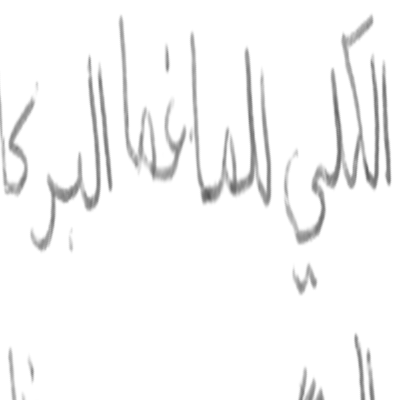 الكلي للماغما البركا